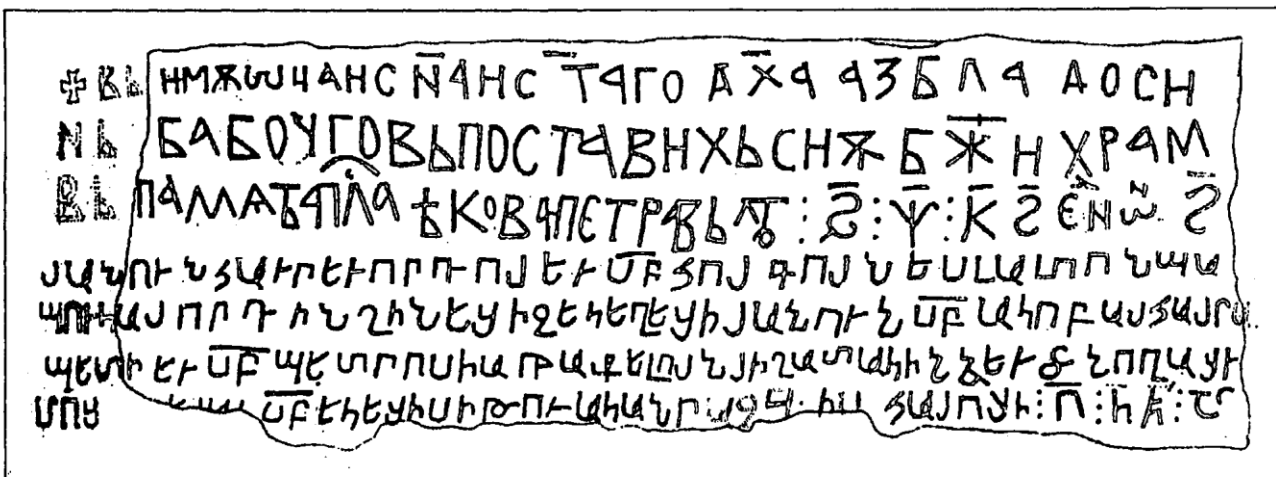 ✠ ВЬ НМѪѠЧАНС Н҃АНС Т҃АГО А Х҃А АЗ БЛА АОСН
НЬ БАБОУГОВЬПОСТАВНХЬСНѪ БЖ҃Н ХРАМ
ВЬ ПАМѦТЬАПЛ҃А ѢКОВАПЕТРАВЬЛѢТ : Ѕ҃ : Ѱ҃ : К҃ Ѕ҃ ЕН Ѿ Ѕ҃
ՅԱՆՈՒՆՀԱՒՐԵՒՈՐԴՈՅԵՒՍԲՀՈՅԳՈՅՆԵՍԼԱԼՏՈՆՊԱ
ՊՈՒԿԱՅՈՐԴԻՆՇԻՆԵՑԻԶԵԿԵՂԵՑԻՅԱՆՈՒՆՍԲԱԿՈԲԱՅՀԱՅՐԱ
ՊԵՏԻԵՒՍԲՊԵՏՐՈՍԻԱՌԱՔԵԼՈՅՆՅԻՇԱՏԱԿԻՆՁԵՒԾՆՈՂԱՑԻ
ՄՈՑ ՍԲԵԿԵՑԻՍԻԹՈՒԱԿԱՆ ՀԱՅՈՑԻ